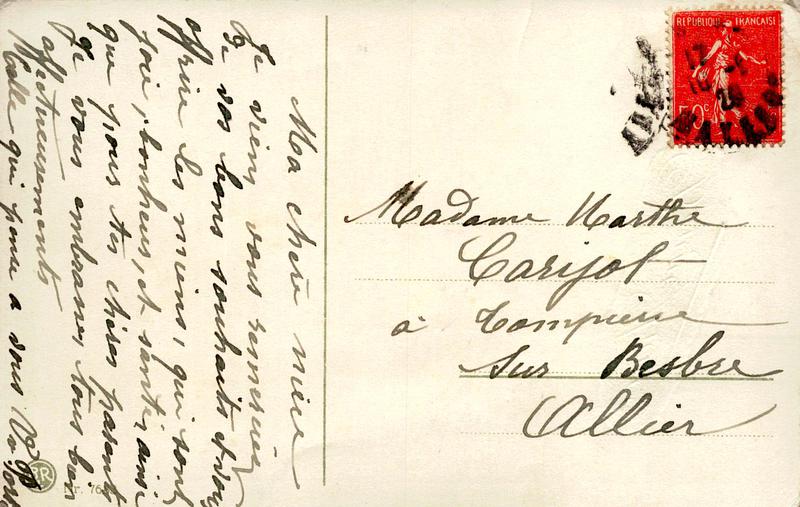 Ma chère mère
Je viens vous remercier
de vos bons souhaits et vous
offrire les miens, qui sont
joie, bonheur, et santé, ainsi
que pour tes chères parents
Je vous embrasse tous bien
affectueusements
celle qui pense a vous
RÉPUBLIQUE FRANÇAISE
17
50c
Madame Marthe
Carijot
à Dompierre
sur Besbre
Allier
Nr. 76